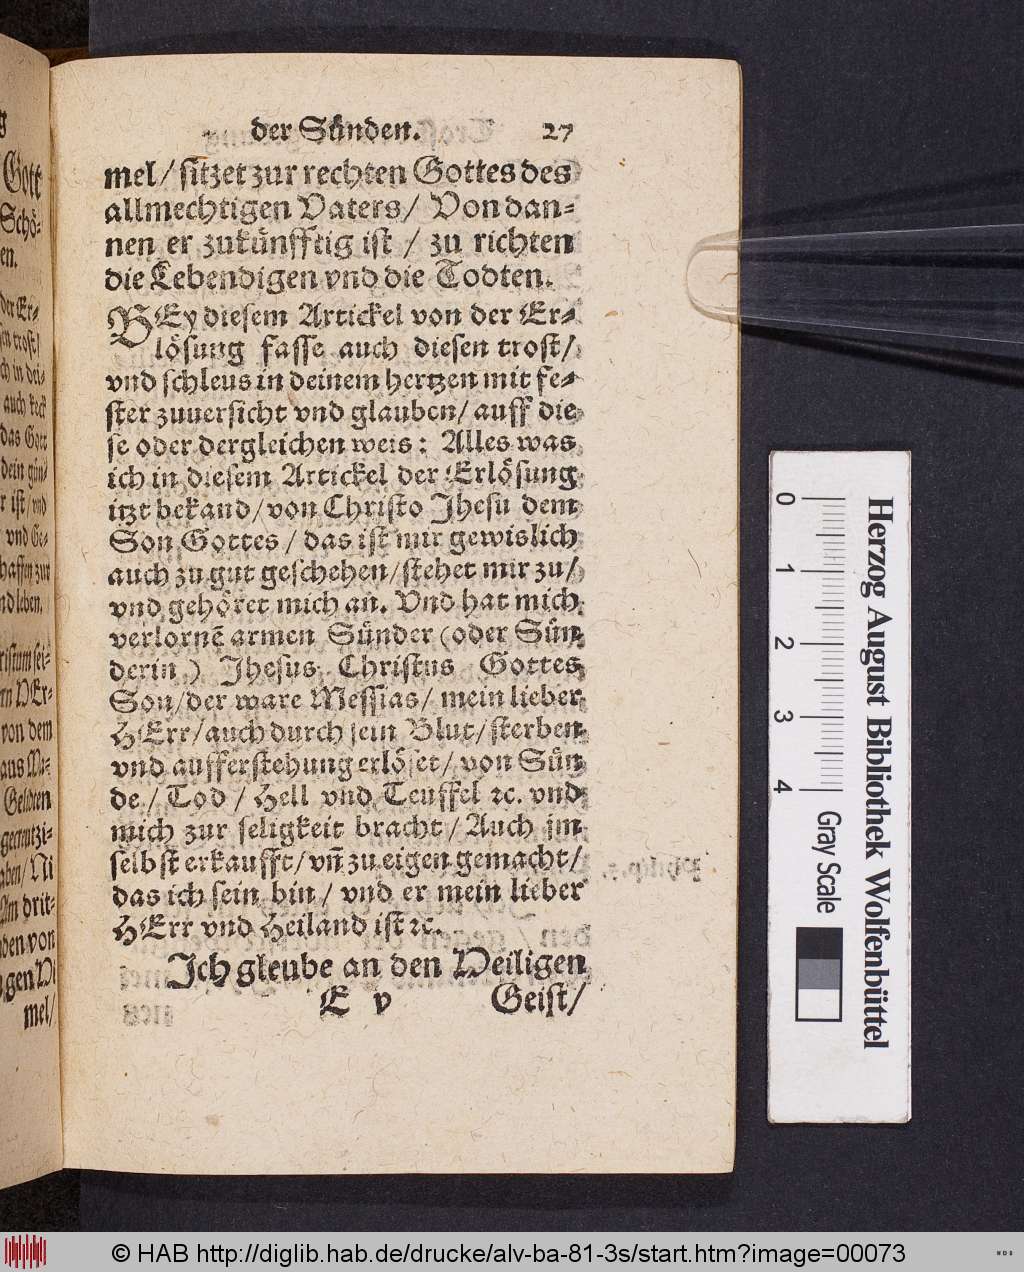 der Sünden. 27
mel/ sitzet zur rechten Gottes des
allmechtigen Vaters/ Von dan-
nen er zukünfftig ist / zu richten
die Lebendigen vnd die Todten.
BEy diesem Artickel von der Er-
lösung fasse auch diesen trost/
vnd schleus in deinem hertzen mit fe-
ster zuuersicht vnd glauben/ auff die
se oder dergleichen weis: Alles was
ich in diesem Artickel der Erlösung
itzt bekand/ von Christo Jhesu dem
Son Gottes / das ist mir gewislich
auch zu gut geschehen/ stehet mir zu/
vnd gehöret mich an. Vnd hat mich
verlornē armen Sünder (oder Sün
derin) Jhesus Christus Gottes
Son/ der ware Messias/ mein lieber
HErr/ auch durch sein Blut/ sterben
vnd aufferstehung erlöset/ von Sün
de/ Tod / Hell vnd Teuffel ꝛc. vnd
mich zur seligkeit bracht/ Auch jm
selbst erkaufft/ vñ zu eigen gemacht/
das ich sein bin/ vnd er mein lieber
HErr vnd Heiland ist ꝛc.
Ich gleube an den Heiligen
E v Geist/
Gott
Schö-
en.
der Er-
auch keck
das Gott
dein
ist/ vnd
vnd Ge-
nd leben.
von dem
aus Ma-
Am drit-
den von
mel/
0 1 2 3 4
Gray Scale
Herzog August Bibliothek Wolfenbüttel
© HAB http://diglib.hab.de/drucke/alv-ba-81-3s/start.htm?image=00073